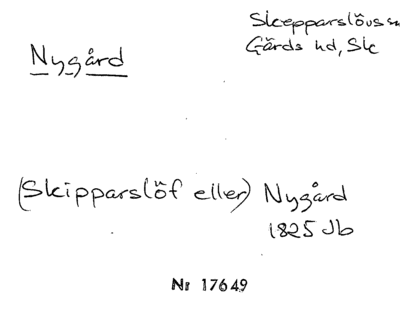 Skepparslövs sn
Gärds hd, Sk
Nygård
(Skipparslöf eller) Nygård
1825 Jb
Nr 17649